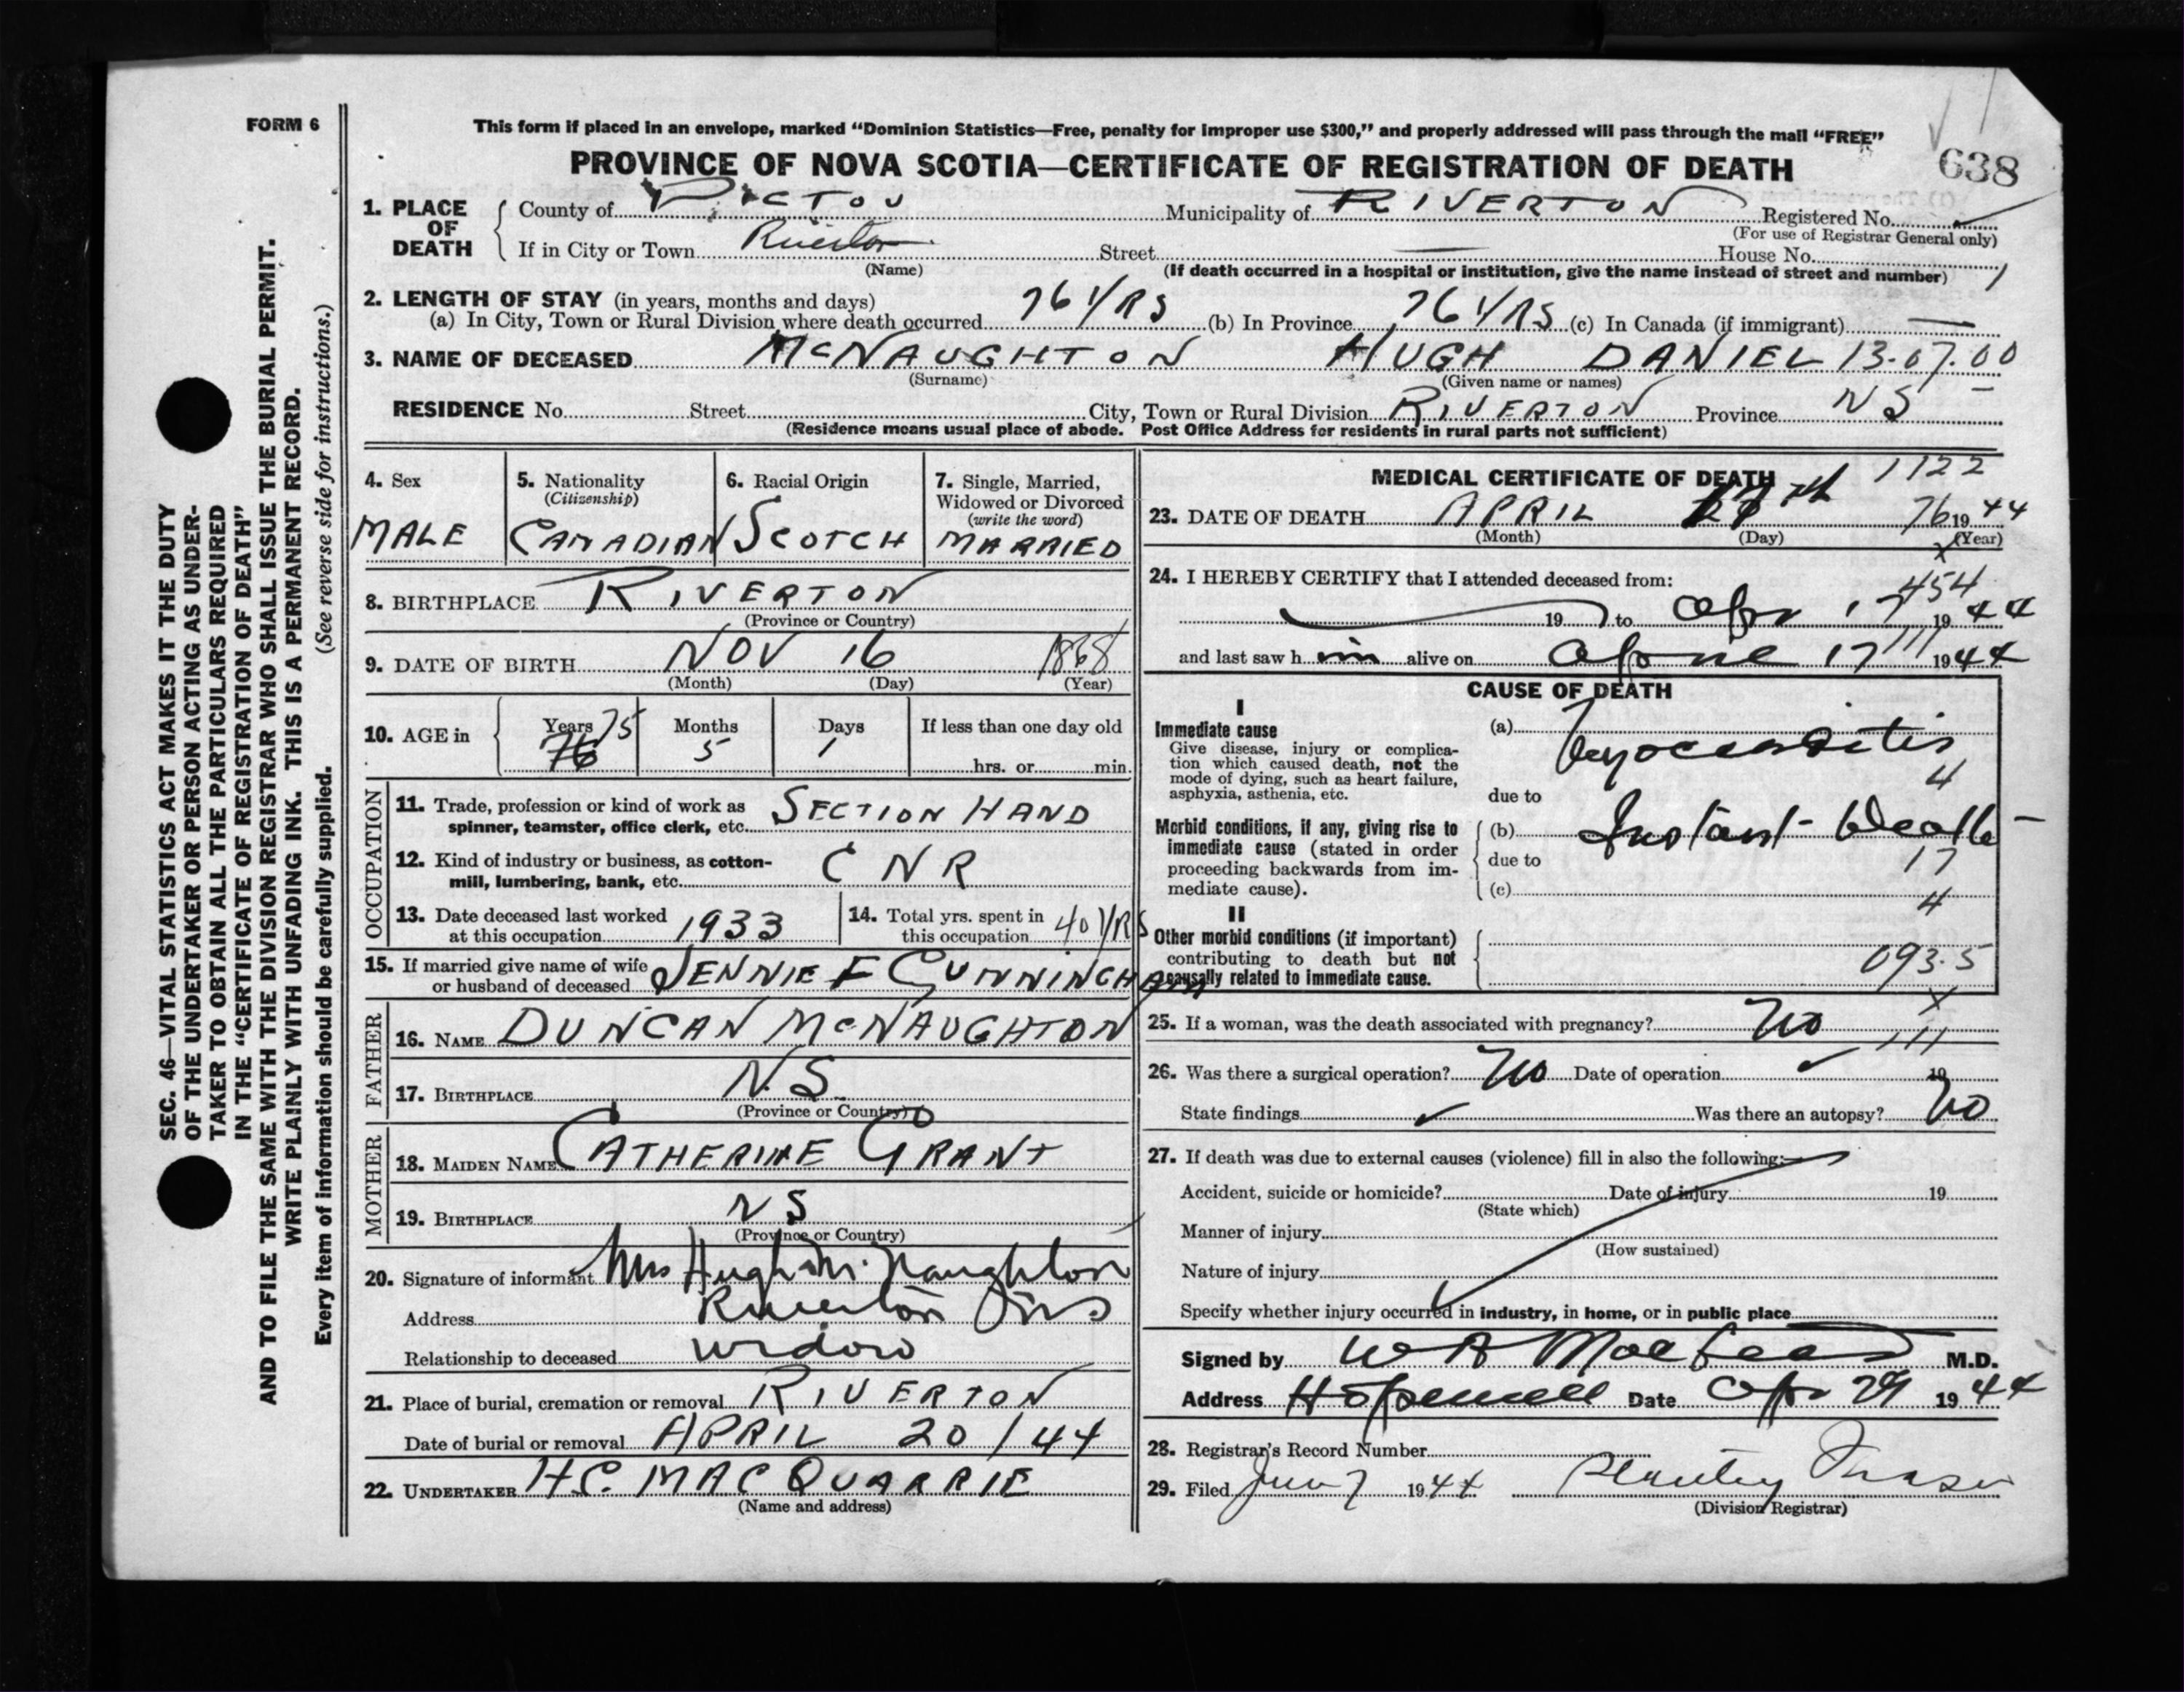 FORM 6
This form if placed in an envelope, marked "Dominion Statistics—Free, penalty for improper use $300," and properly addressed will pass through the mail "FREE"
PROVINCE OF NOVA SCOTIA—CERTIFICATE OF REGISTRATION OF DEATH
638
1. PLACE OF DEATH
County of PICTOU Municipality of RIVERTON Registered No.
(For use of Registrar General only)
If in City or Town Riverton Street — House No.
(Name) (If death occurred in a hospital or institution, give the name instead of street and number)
2. LENGTH OF STAY (in years, months and days)
(a) In City, Town or Rural Division where death occurred 76 YRS (b) In Province 76 YRS (c) In Canada (if immigrant) —
3. NAME OF DECEASED McNAUGHTON HUGH DANIEL 13.07.00
(Surname) (Given name or names)
RESIDENCE No. Street City, Town or Rural Division RIVERTON Province NS
(Residence means usual place of abode. Post Office Address for residents in rural parts not sufficient)
4. Sex
MALE
5. Nationality
(Citizenship)
CANADIAN
6. Racial Origin
SCOTCH
7. Single, Married,
Widowed or Divorced
(write the word)
MARRIED
8. BIRTHPLACE RIVERTON
(Province or Country)
9. DATE OF BIRTH NOV 16 1868
(Month) (Day) (Year)
10. AGE in Years Months Days If less than one day old
76 75 5 1 hrs. or min.
OCCUPATION
11. Trade, profession or kind of work as SECTION HAND
spinner, teamster, office clerk, etc.
12. Kind of industry or business, as cotton- C N R
mill, lumbering, bank, etc.
13. Date deceased last worked
at this occupation 1933
14. Total yrs. spent in
this occupation 40 YRS
15. If married give name of wife
or husband of deceased JENNIE F CUNNINGHAM
FATHER
16. NAME DUNCAN McNAUGHTON
17. BIRTHPLACE N.S.
(Province or Country)
MOTHER
18. MAIDEN NAME CATHERINE GRANT
19. BIRTHPLACE NS
(Province or Country)
20. Signature of informant Mrs Hugh McNaughton
Address Riverton NS
Relationship to deceased widow
21. Place of burial, cremation or removal RIVERTON
Date of burial or removal APRIL 20/44
22. UNDERTAKER H.C. MACQUARRIE
(Name and address)
MEDICAL CERTIFICATE OF DEATH 1122
23. DATE OF DEATH APRIL 17th 76 1944
(Month) (Day) (Year)
24. I HEREBY CERTIFY that I attended deceased from:
454
19 to Apr 17 1944
and last saw him alive on April 17 1944
111
CAUSE OF DEATH
I
Immediate cause
Give disease, injury or complica-
tion which caused death, not the
mode of dying, such as heart failure,
asphyxia, asthenia, etc.
(a) Myocarditis
4
due to
Morbid conditions, if any, giving rise to
immediate cause (stated in order
proceeding backwards from im-
mediate cause).
(b) Instant Death
due to 17
(c) 4
II
Other morbid conditions (if important)
contributing to death but not
causally related to immediate cause.
093.5
25. If a woman, was the death associated with pregnancy? No
111
26. Was there a surgical operation? No Date of operation 19
State findings Was there an autopsy? No
27. If death was due to external causes (violence) fill in also the following:
Accident, suicide or homicide? Date of injury 19
(State which)
Manner of injury
(How sustained)
Nature of injury
Specify whether injury occurred in industry, in home, or in public place
Signed by W A MacLeod M.D.
Address Hopewell Date Apr 29 1944
28. Registrar's Record Number
29. Filed June 7 1944 Fraser
(Division Registrar)
SEC. 46—VITAL STATISTICS ACT MAKES IT THE DUTY
OF THE UNDERTAKER OR PERSON ACTING AS UNDER-
TAKER TO OBTAIN ALL THE PARTICULARS REQUIRED
IN THE "CERTIFICATE OF REGISTRATION OF DEATH"
AND TO FILE THE SAME WITH THE DIVISION REGISTRAR WHO SHALL ISSUE THE BURIAL PERMIT.
WRITE PLAINLY WITH UNFADING INK. THIS IS A PERMANENT RECORD.
Every item of information should be carefully supplied. (See reverse side for instructions.)